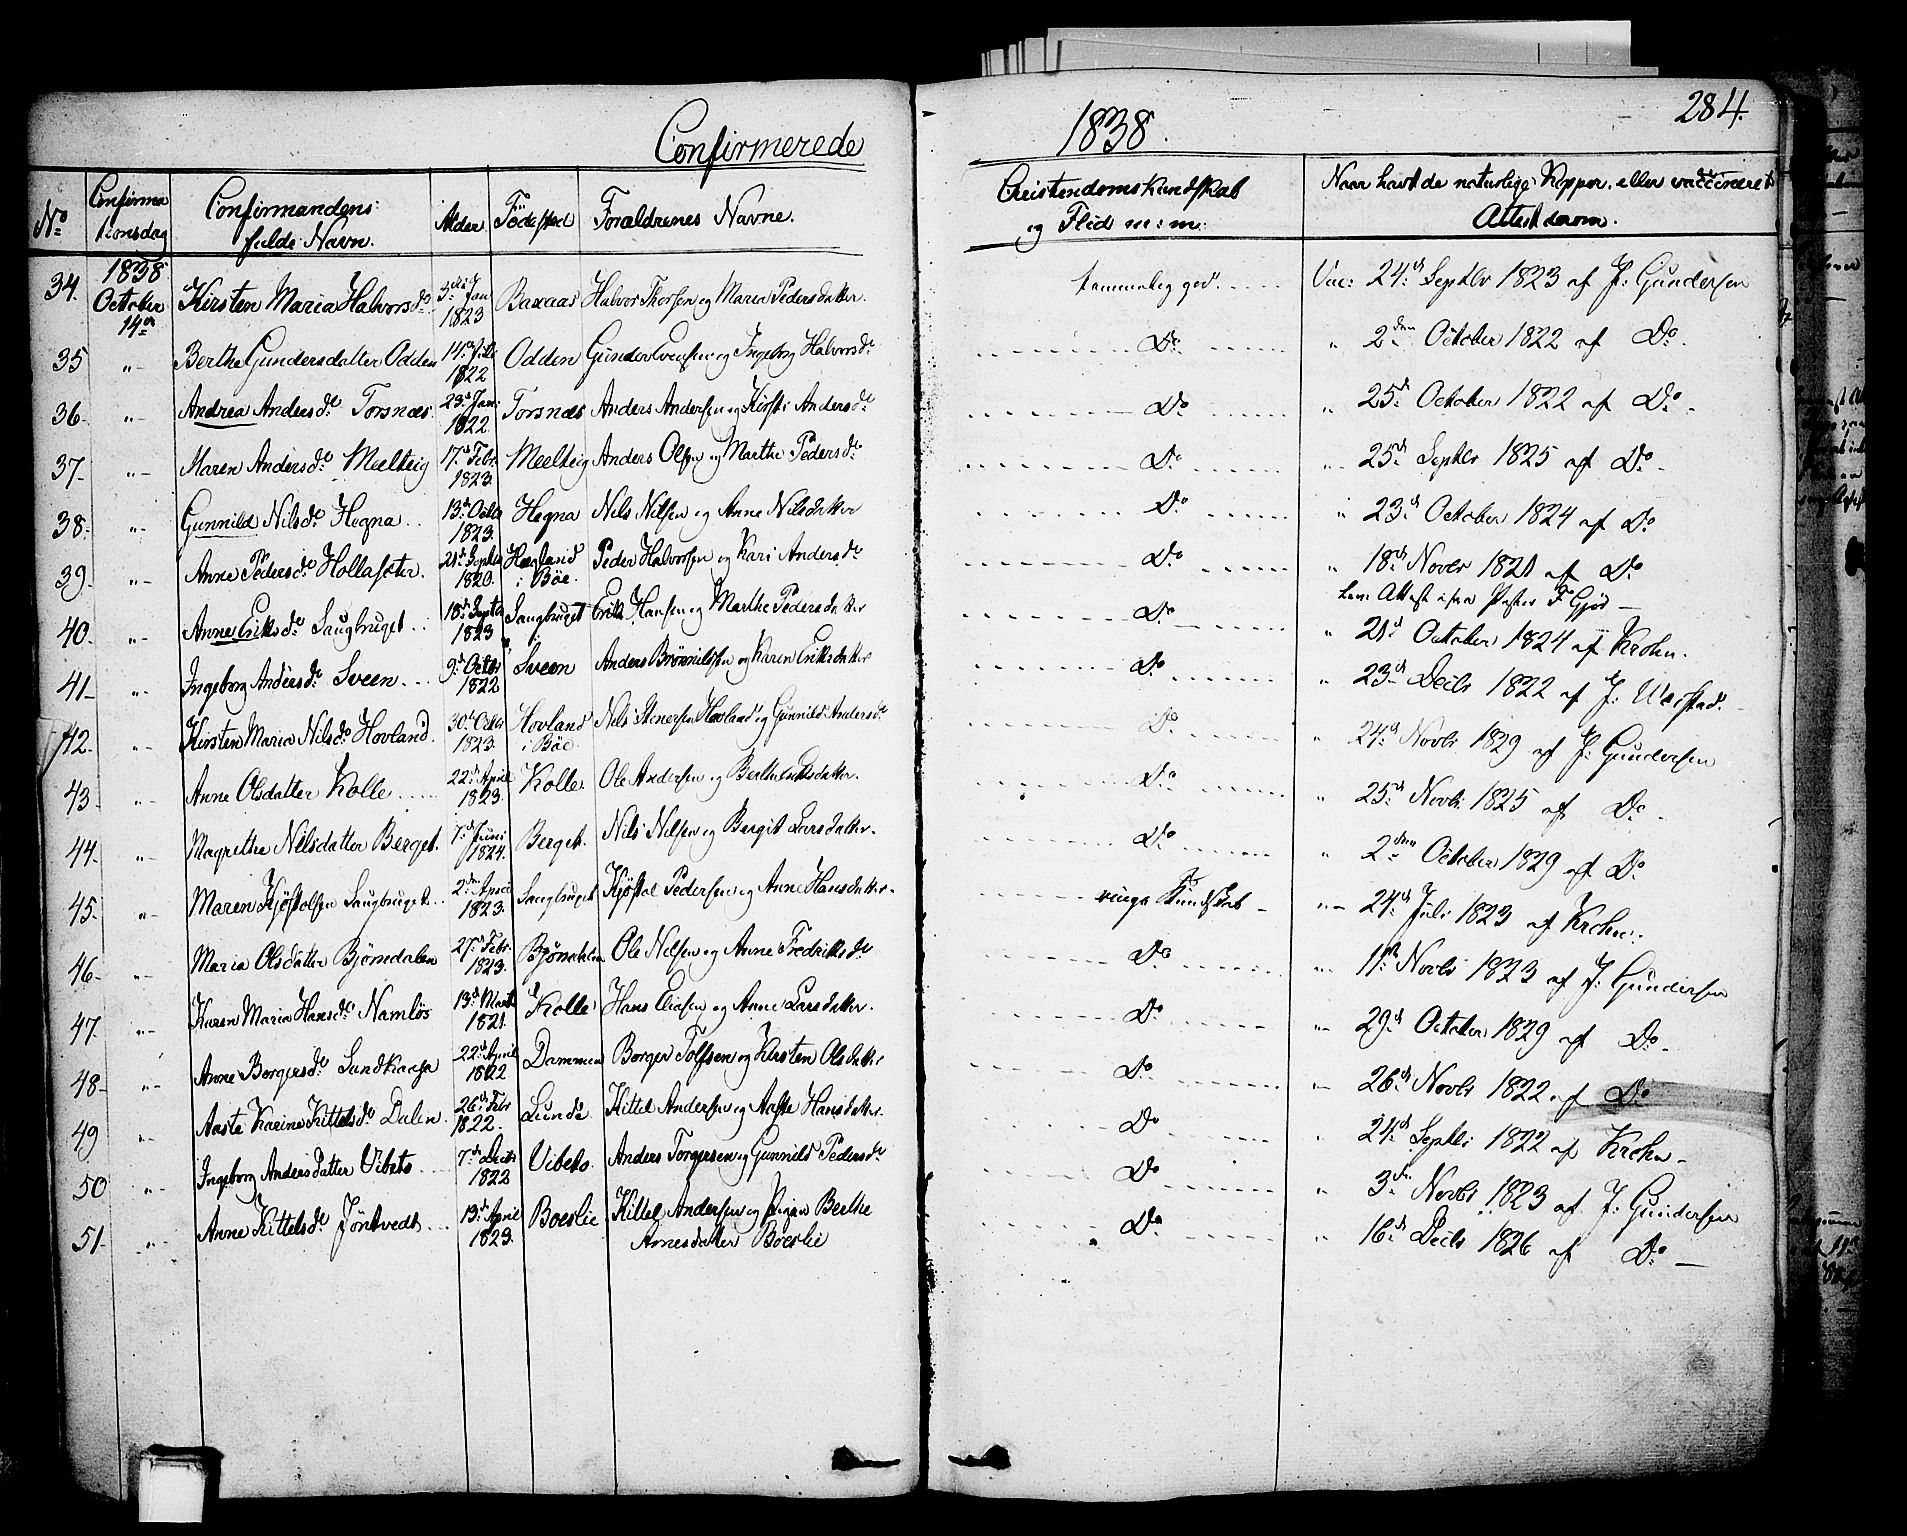 Confirmerede
1838.
284.
No
Confirma
tionsdag
Confirmandens
fulde Navn.
Alder
Födested
Forældrenes Navne.
Christendomskundskab
og Flid m: m:
Naar havt de naturlige Kopper, eller vaccineret
Attest derom.
34. 1838 October 14de Kirsten Maria Halvorsdr 3die Jan 1823 Baxaas Halvor Thorsen og Maren Pedersdatter. temmelig god. Vac: 24de Septbr 1823 af J: Gundersen
35 " Berthe Gundersdatter Odden 14de 1822 Odden Gunder Evensen og Ingeborg Halvorsdr Do. " 2den October 1822 af Do.
36 " Andrea Andersdr Torsnæs 23de Jan: 1822 Torsnæs Anders Andersen og Kirsti Andersdr Do " 25de October 1822 af Do.
37. " Maren Andersdr Meelteig 17de Febr. 1823 Meelteig Anders Olsen og Marthe Pedersdr Do " 25de Septbr 1825 af Do
38. " Gunnild Nilsdr Hegna 13de Octbr 1823. Hegna Nils Nilsen og Anne Nilsdatter Do " 23de October 1824 af Do
39. " Anne Pedersdr Hollasæter. 21de Septbr 1820. Hægland i Böe Peder Halvorsen og Kari Andersdr Do " 18de Novbr 1821 af Do
Pastor Gjör
40. " Anne Eriksdr Saugbruget 18de Septbr 1823 Saugbruget Erik Hansen og Marthe Pedersdatter Do " 21de October 1824 af Krohn.
41 " Ingeborg Andersdr Sveen 9de Octbr 1822 Sveen Anders Brönnildsen og Karen Eriksdatter Do " 23de Decbr 1822 af J:
42. " Kirsten Maria Nilsdr Hovland 30te Octbr 1823. Hovland i Böe Nils Stenersen Hovland og Gunnild Andersdr Do " 24de Novbr 1829 af J: Gundersen
43 " Anne Olsdatter Kolle 22de April 1823. Kolle Ole Andersen og Berthe Eriksdatter. Do " 25de Novbr 1825 af Do
44. " Magrethe Nilsdatter Berget. 7de Juni 1824. Berget. Nils Nilsen og Bergit Larsdatter. Do " 2den October 1829 af Do
45. " Maren Kjöstolsen Saugbruget 2den April 1823. Saugbruget Kjöstol Pedersen og Anne Hansdatter. ringe Kundskab " 24de Juli 1823 af Krohn.
46. " Maria Olsdatter Björndalen 27de Febr. 1823. Björndalen Ole Nilsen og Anne Fredriksdr Do " 11te Novbr 1823 af J: Gundersen
47. " Karen Maria Hansdr Namlös 13de Marts 1821. Kolle Hans Eliasen og Anne Larsdatter. Do " 29de October 1829 af Do.
48 " Anne Borgersdr Sandkaasa 22de April 1822 Dammen Borger Tolfsen og Kirsten Olsdatter Do " 26de Novbr 1822 af Do
49 " Aaste Karine Kittelsdr Dalen. 26de Febr 1822. Lunde Kittel Andersen og Aaste Hansdatter. Do " 24de Septbr 1822 af Krohn
50 " Ingeborg Andersdatter Vibeto 7de Decbr 1822 Vibeto. Anders Torgersen og Gunnild Pedersdr Do " 3die Novbr 1823 af J: Gundersen
51. " Anne Kittelsdr Jöntvedt 13de April 1823. Boeslie Kittel Andersen og Pigen Berthe
Arnesdatter Böeslie Do " 16de Decbr 1826 af Do